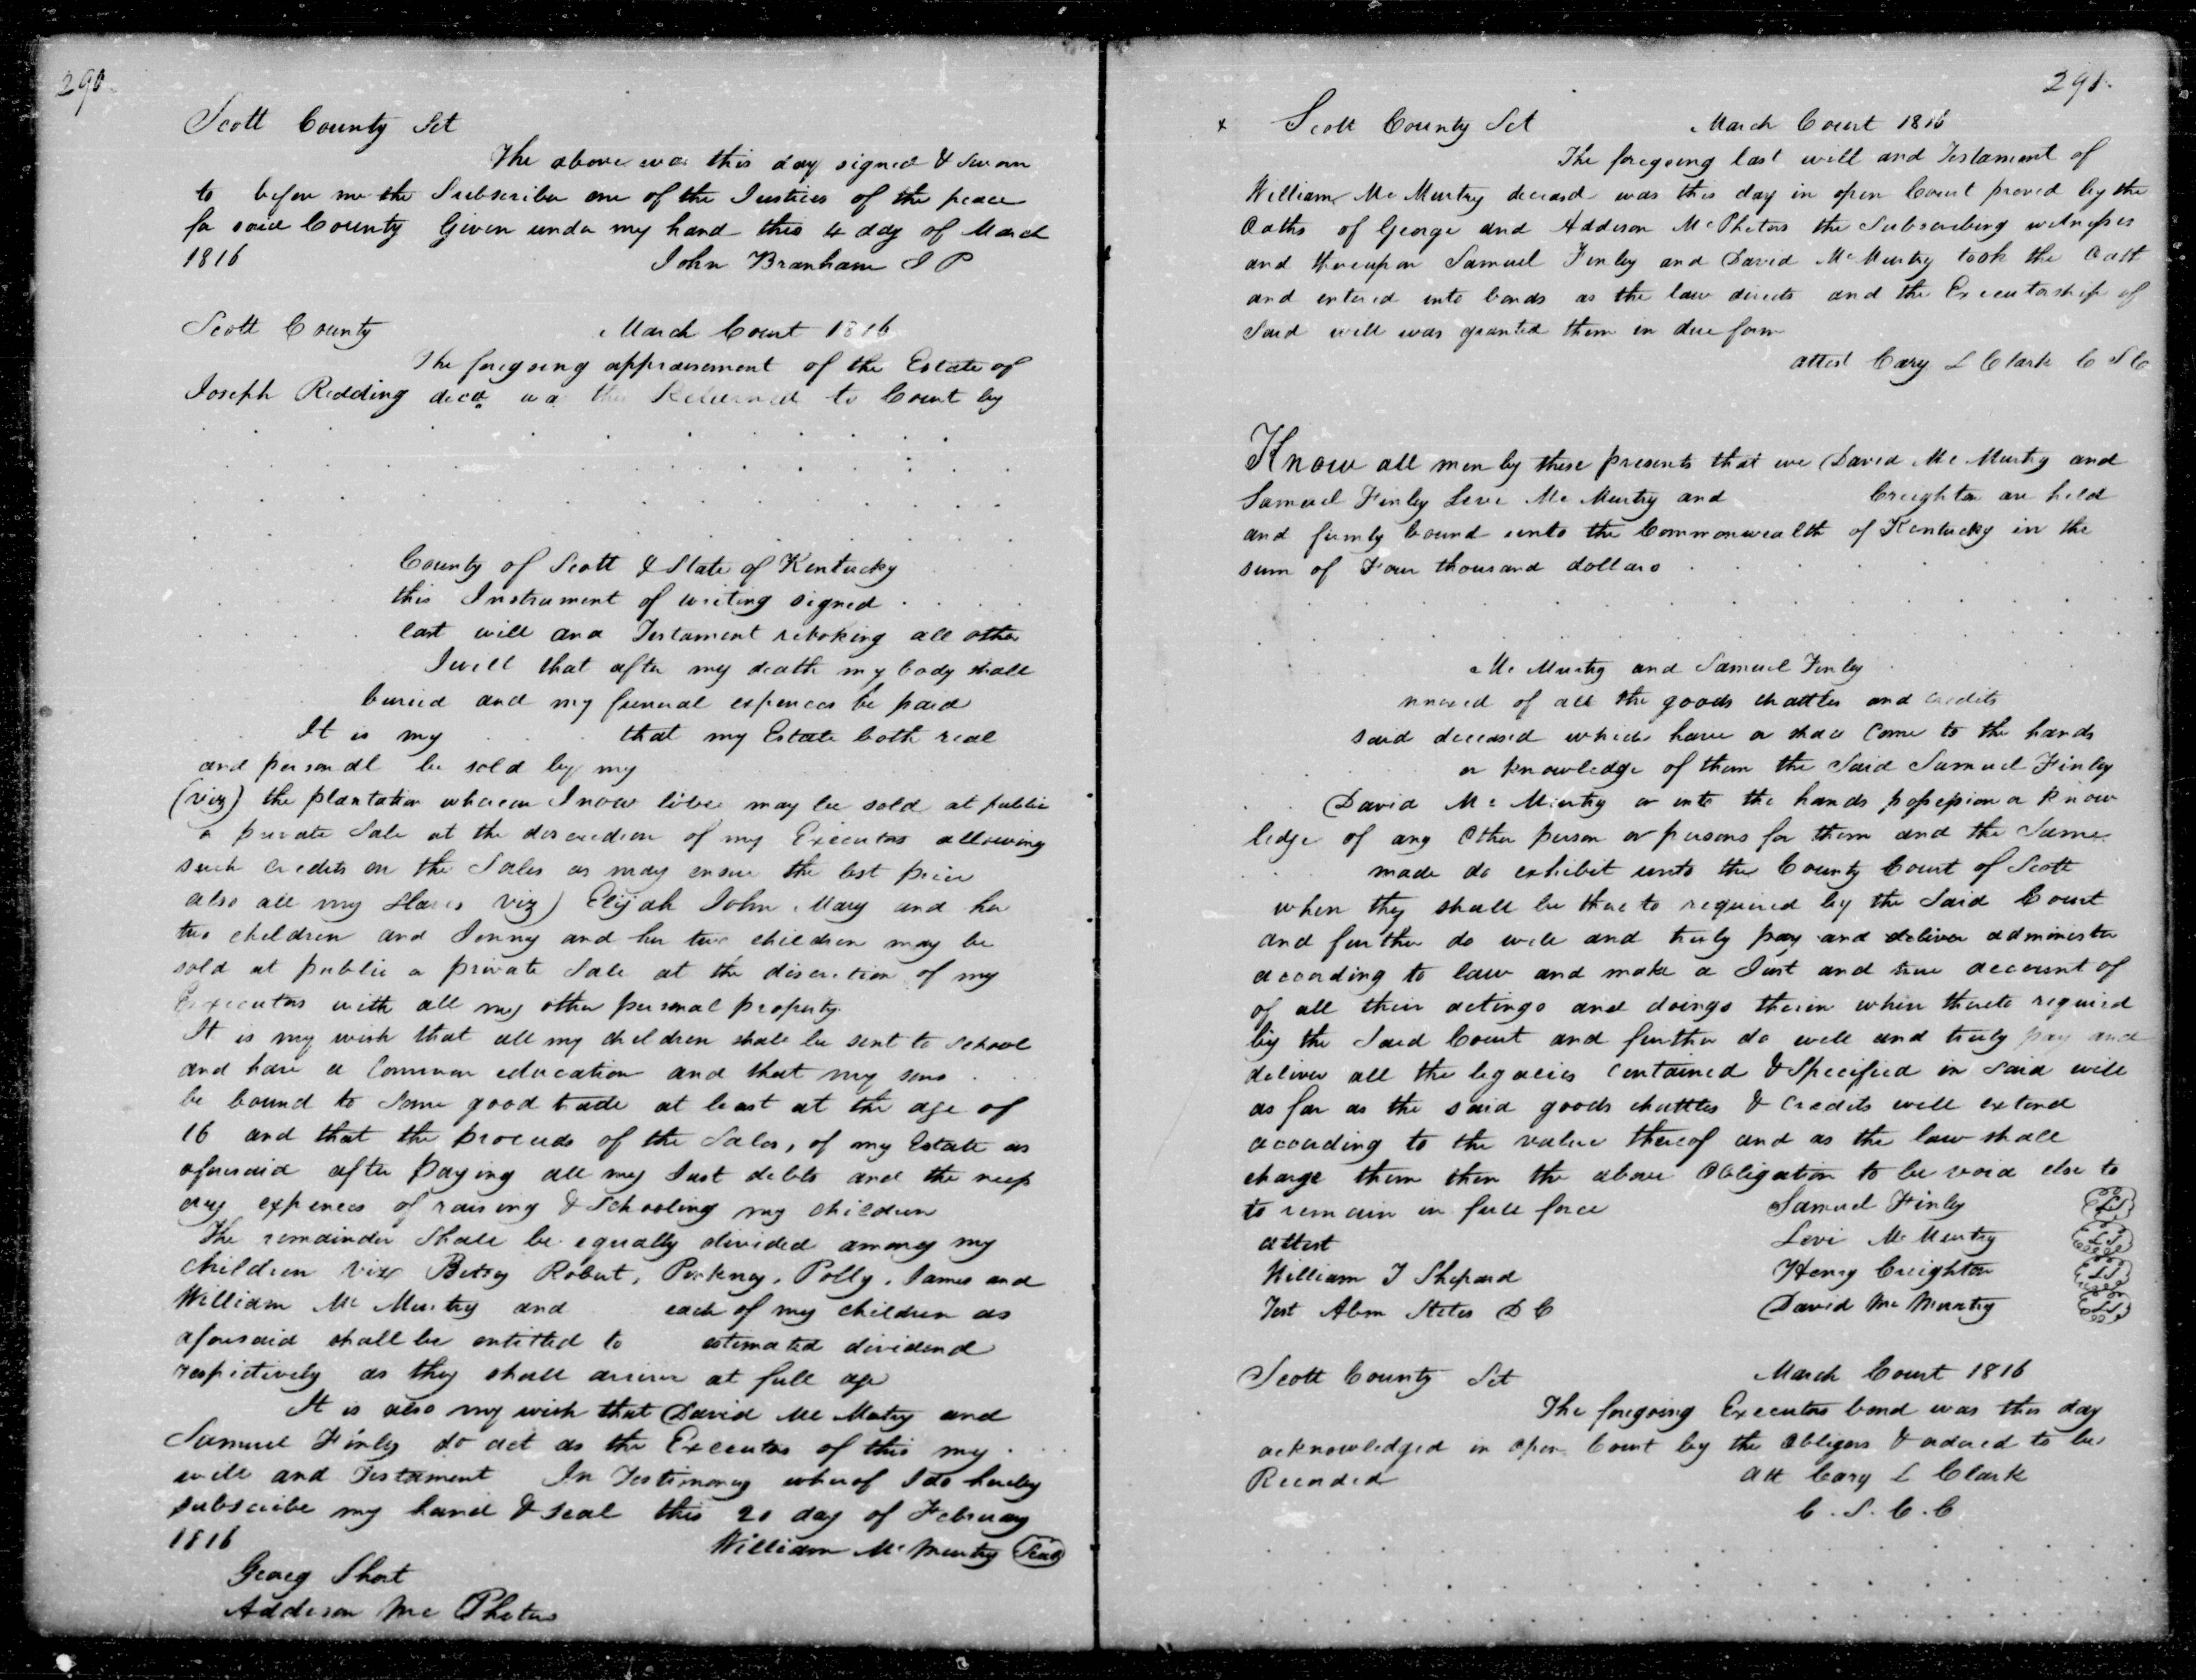 290.
Scott County Sct
The above was this day signed & Sworn
to before me the Subscriber one of the Justices of the peace
for said County Given under my hand this 4 day of March
1816 John Branham J P
Scott County March Court 1816
The foregoing appraisement of the Estate of
Joseph Redding decd was this Returned to Court by
County of Scott & State of Kentucky
this Instrument of writing signed
last will and Testament revoking all other
I will that after my death my body shall
buried and my funeral expences be paid
It is my that my Estate both real
and personal be sold by my
(viz) the plantation whereon I now live may be sold at public
or private Sale at the discredion of my Executors allowing
such credits on the Sales as may ensure the best price
also all my slaves viz) Elijah John Mary and her
two children and Jenny and her two children may be
sold at public or private Sale at the discretion of my
Executors with all my other personal property.
It is my wish that all my children shall be sent to School
and have a Common education and that my sons
be bound to some good trade at least at the age of
16 and that the proceeds of the Sales, of my Estate as
aforesaid after paying all my Just debts and the necess
ary expences of raising & Schooling my children
The remainder Shall be equally divided among my
children viz Betsy Robert, Pinkney, Polly, James and
William Mc Murtry and each of my children as
aforesaid shall be entitled to estimated dividend
respictively as they shall arrive at full age
It is also my wish that David Mc Mutry and
Samuel Finley do act as the Executors of this my
will and Testament In Testimony whereof I do hereby
subscribe my hand & seal this 20 day of February
1816 William Mc Murtry Seal
Georg Short
Addison Mc Pheters
291.
x Scott County Sct March Court 1816
The foregoing last will and Testament of
William Mc Murtry deceasd was this day in open Court proved by the
Oaths of George and Addison McPheters the Subscribing witnesses
and thereupon Samuel Finley and David McMurtry took the Oath
and entered into bonds as the law directs and the Executorship of
Said will was granted them in due form
attest Cary L Clark C S C
Know all men by these presents that we David Mc Murtry and
Samuel Finley Levi Mc Murtry and Creighton are held
and firmly bound unto the Commonwealth of Kentucky in the
sum of Four thousand dollars
Mc Murtry and Samuel Finley
of all the goods chattles and credits
said deceased which have or shall Come to the hands
or knowledge of them the Said Samuel Finley
David Mc Murtry or into the hands possession or know
ledge of any Other person or persons for them and the Same
made do exhibit unto the County Court of Scott
when they shall be thereto required by the Said Court
and further do well and truly pay and deliver administer
according to law and make a Just and true account of
of all their actings and doings therein when thereto required
by the Said Court and further do well and truly pay and
deliver all the legacies contained & Specified in Said will
as far as the said goods chattles & Credits will extend
according to the value thereof and as the law shall
charge them then the above Obligation to be void else to
to remain in full force Samuel Finley LS
attest Levi Mc Murtry LS
William T Shepard Henry Creighton LS
Test Abm Stites D C David Mc Murtry LS
Scott County Sct March Court 1816
The foregoing Executors bond was this day
acknowledged in Open Court by the Obligors & ordered to be
Recorded Att Cary L Clark
C. S. C. C.